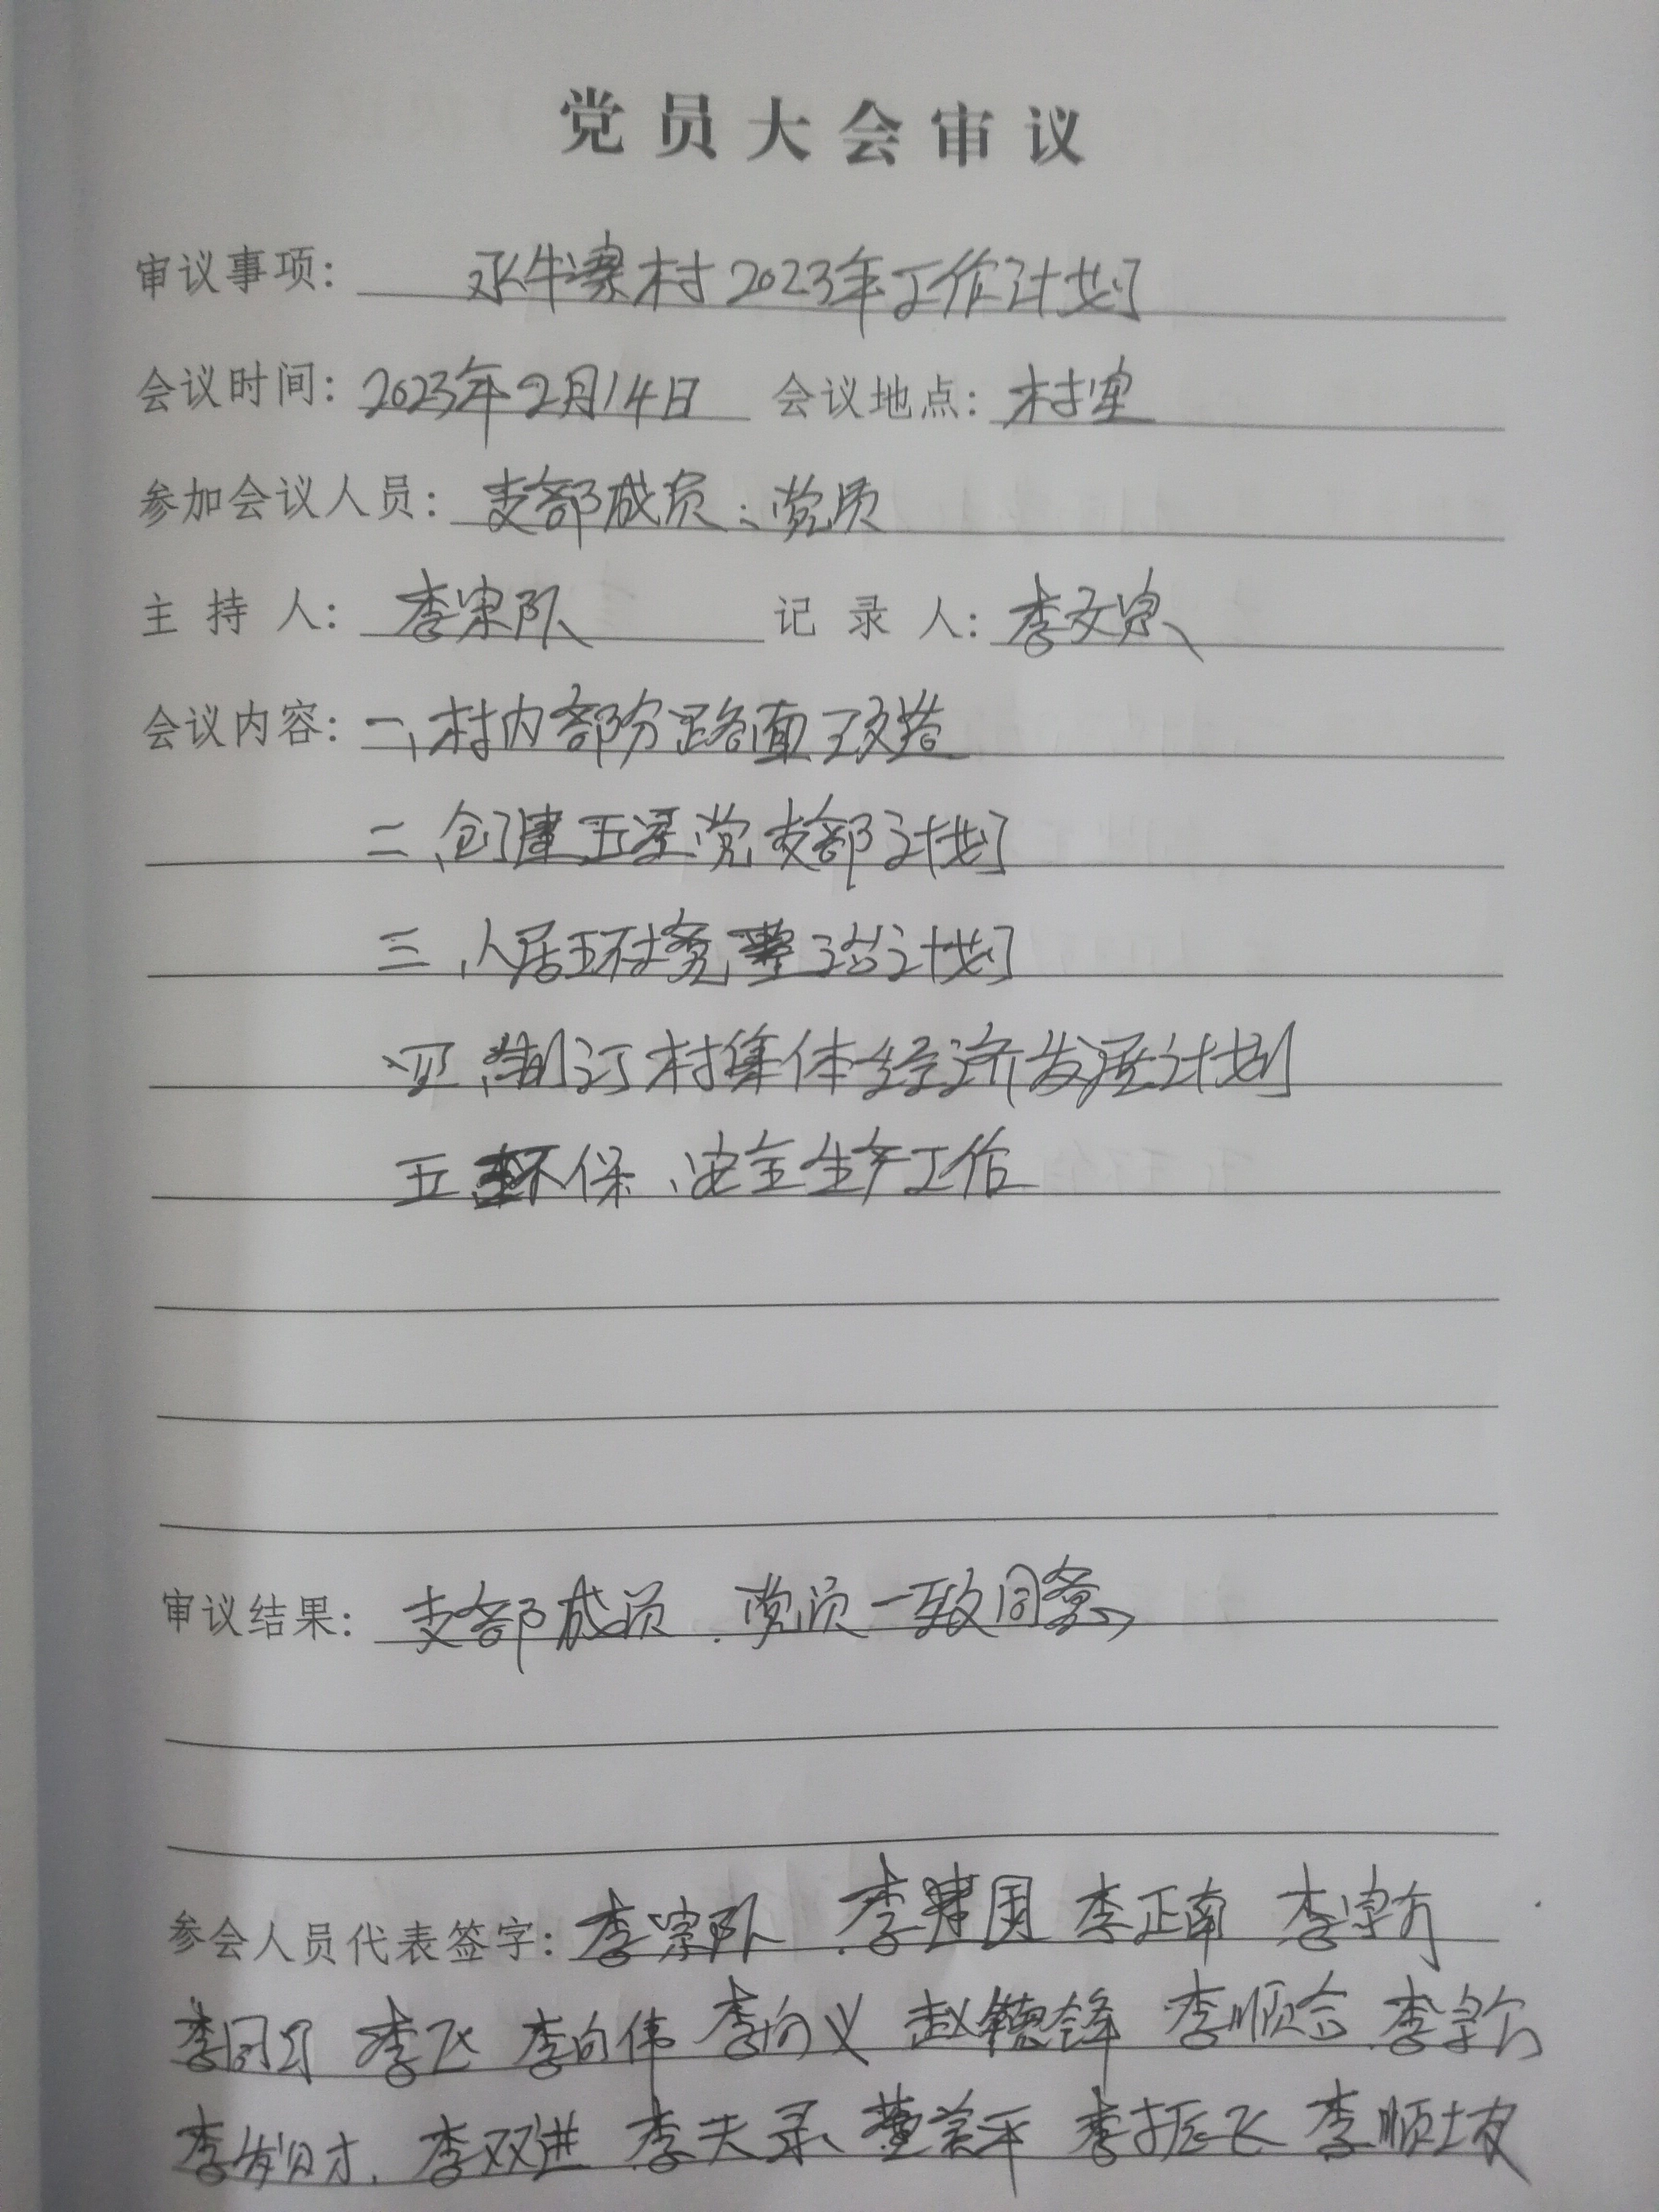 党员大会审议
审议事项： 村2023年工作计划
会议时间：2023年2月14日 会议地点：村室
参加会议人员：支部成员、党员
主持人：李宗队 记录人：李文忠
会议内容：一、村内部分路面改造
二、创建五星党支部计划
三、人居环境整治计划
四、制订村集体经济发展计划
五、环保、安全生产工作
审议结果：支部成员、党员一致同意
参会人员代表签字：李宗队 李建国 李正南
李飞 李向伟 李向义 赵德锋 李顺合
李发财 李双进 李振飞